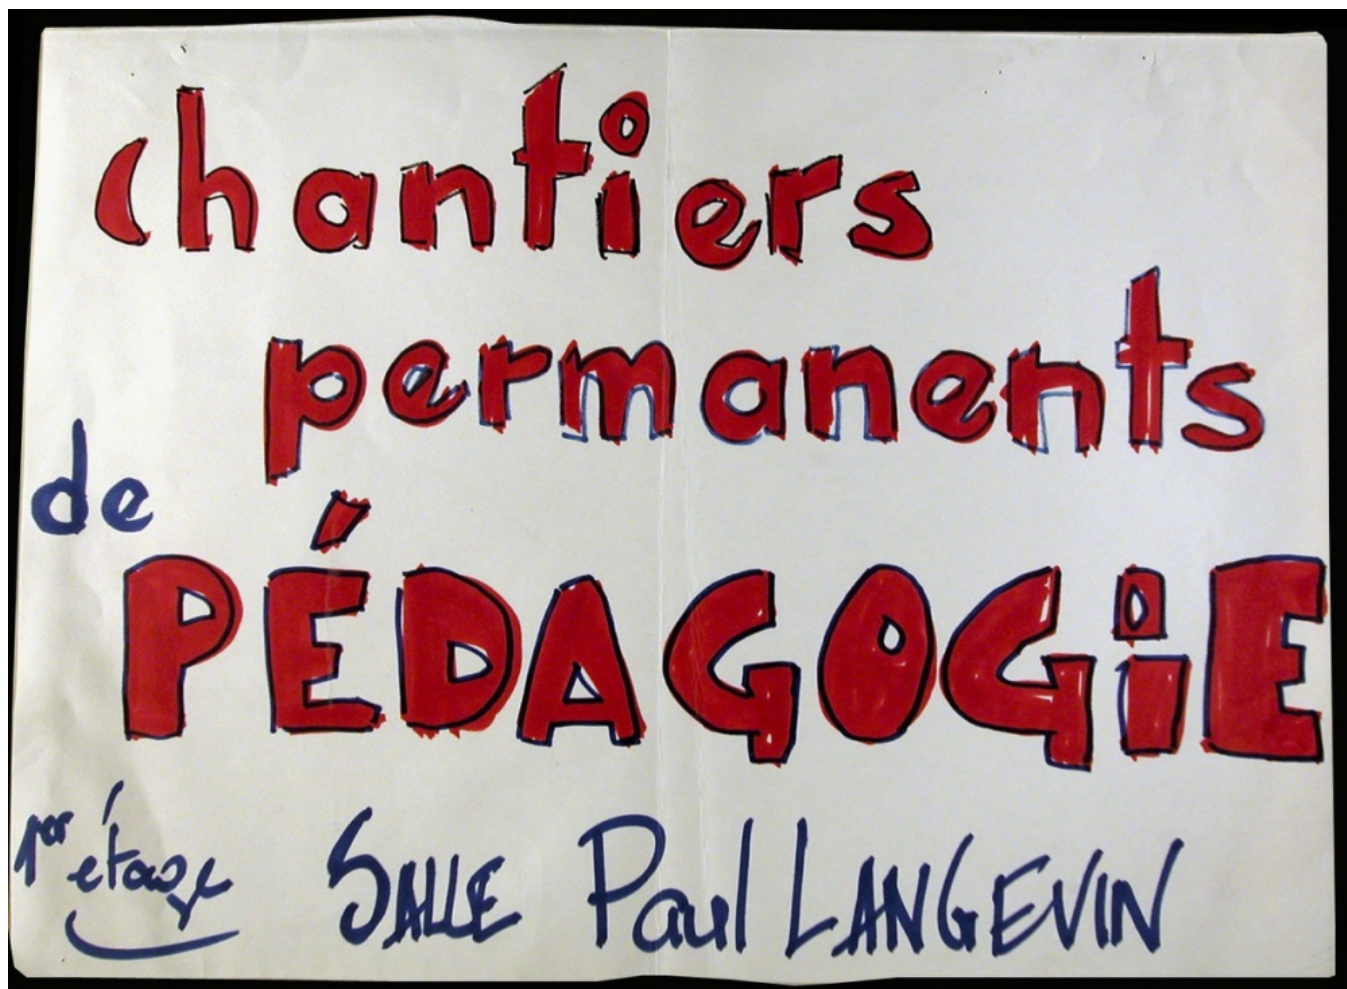 chantiers
permanents
de
PÉDAGOGiE
1er étage SALLE Paul LANGEVIN